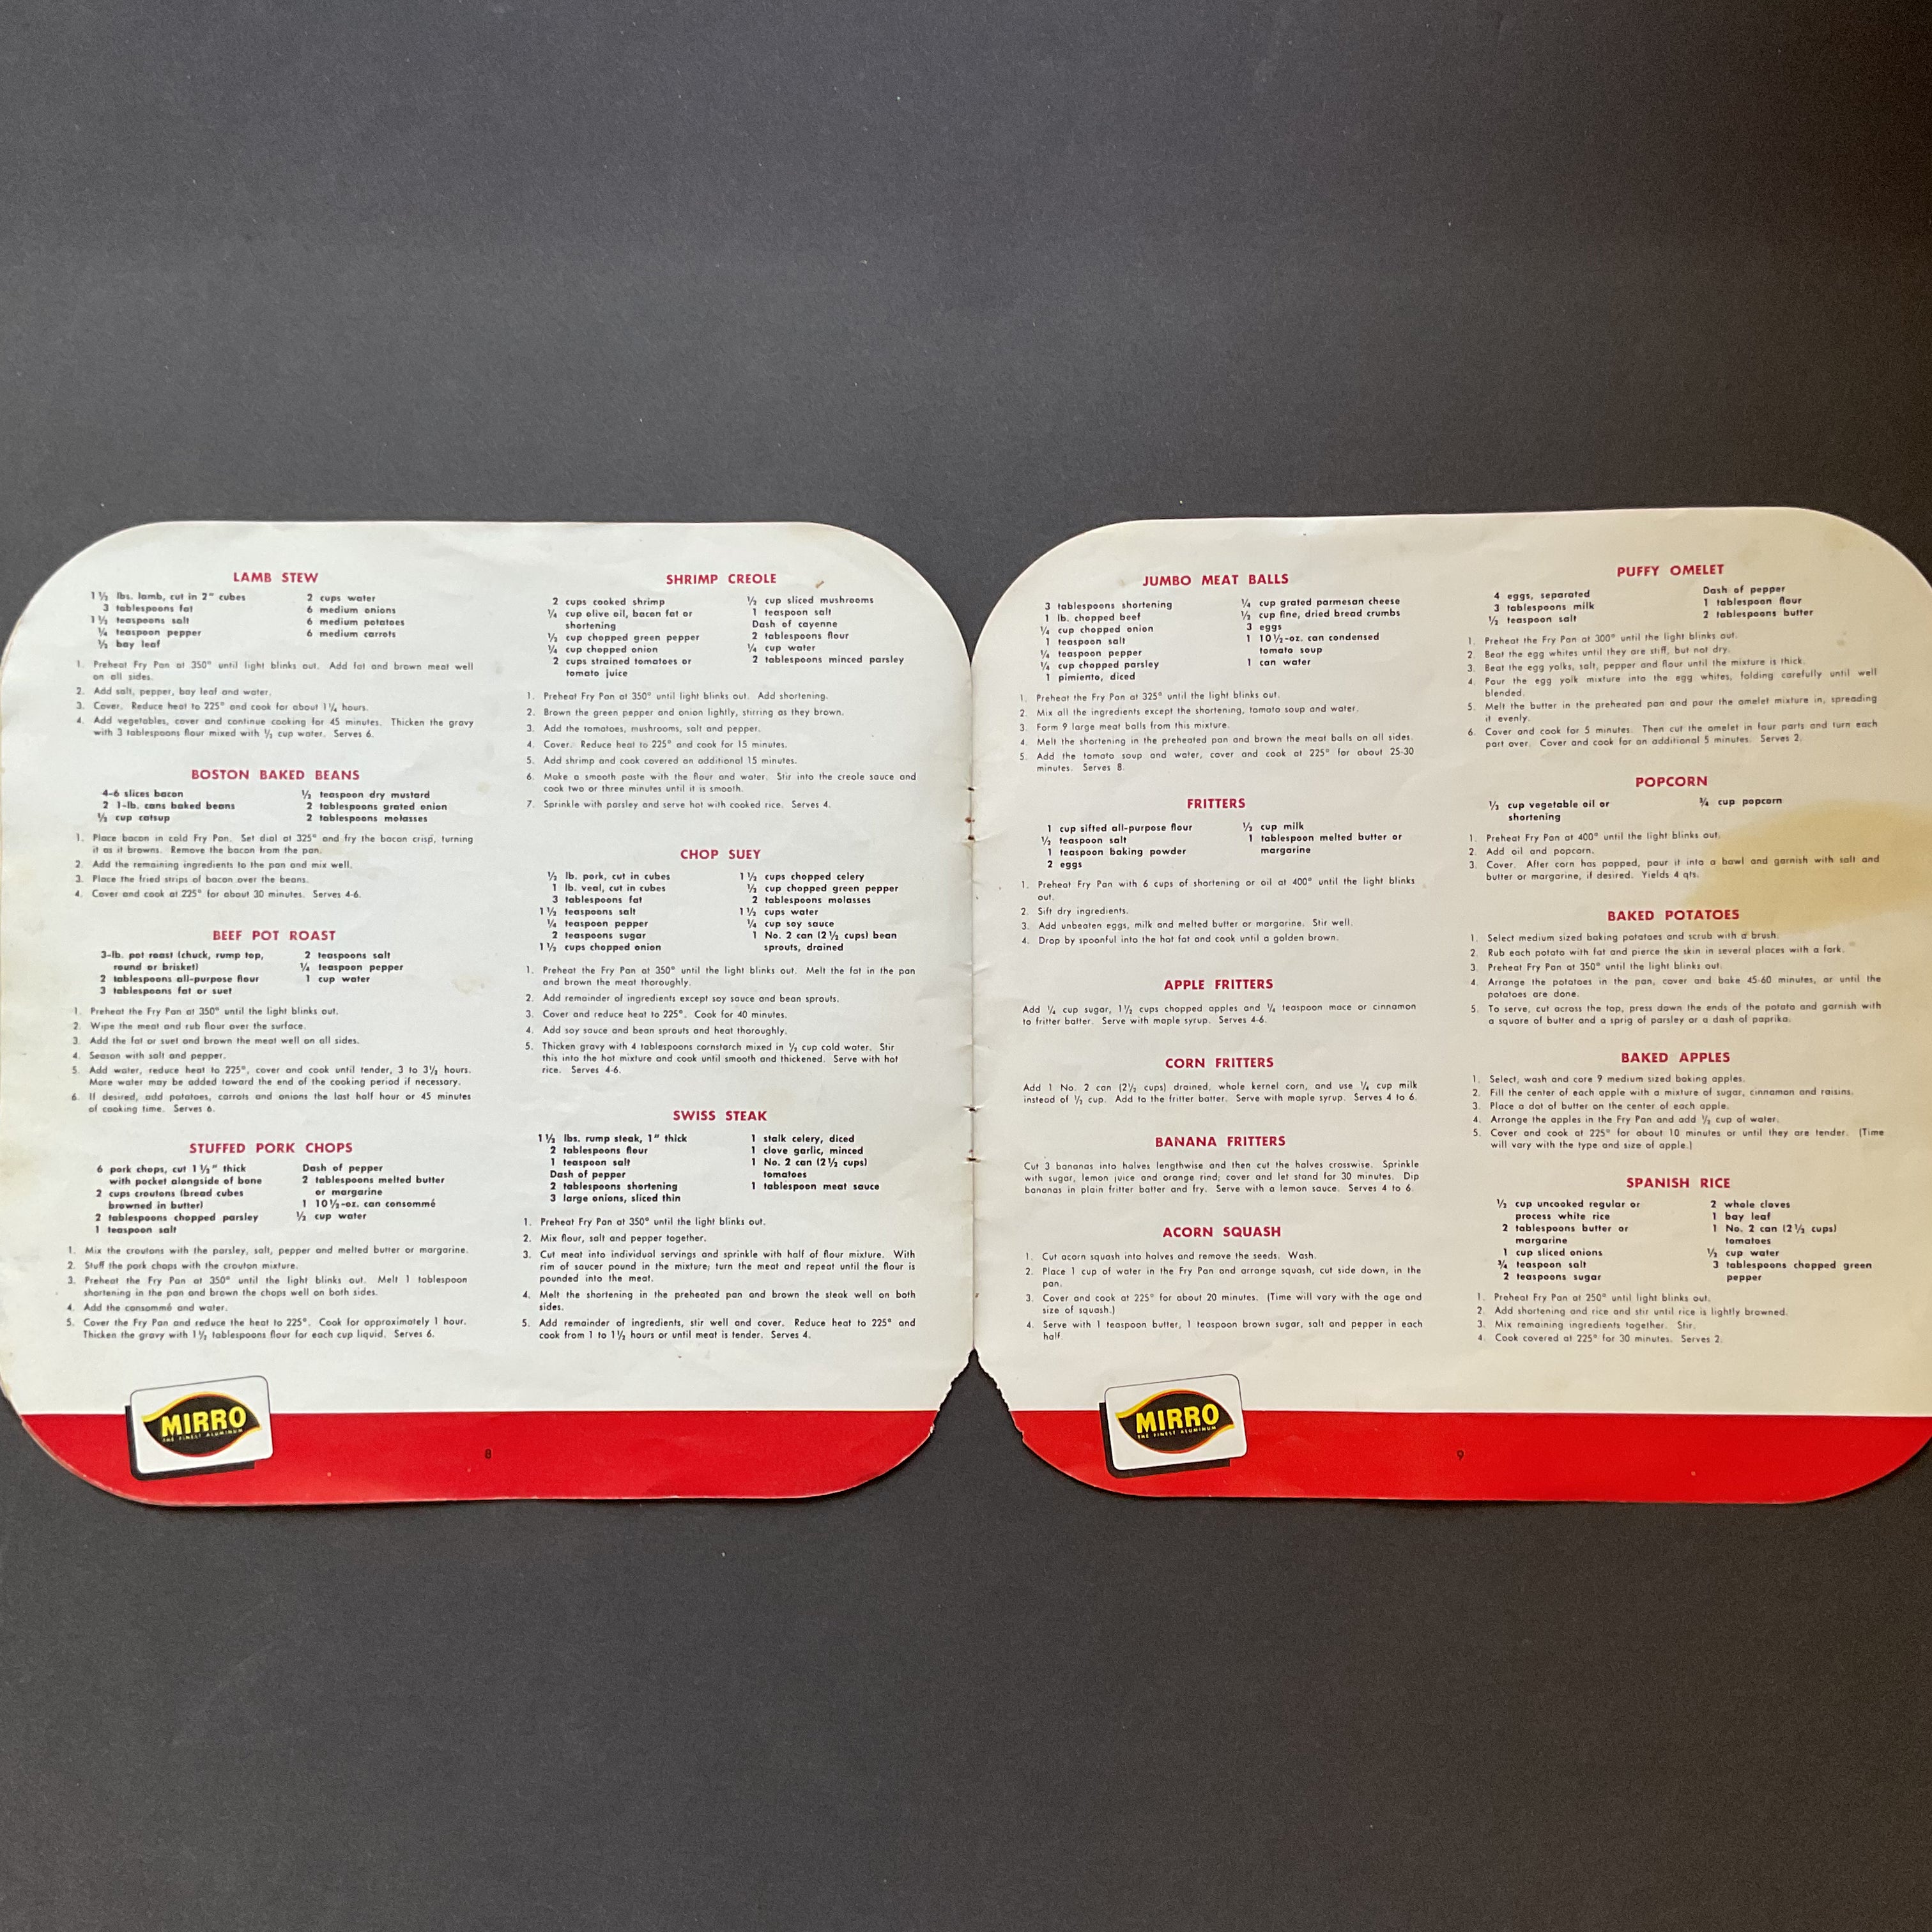 LAMB STEW
1½ lbs. lamb, cut in 2" cubes
3 tablespoons fat
1½ teaspoons salt
¼ teaspoon pepper
½ bay leaf
2 cups water
6 medium onions
6 medium potatoes
6 medium carrots
1. Preheat Fry Pan at 350° until light blinks out. Add fat and brown meat well
on all sides.
2. Add salt, pepper, bay leaf and water.
3. Cover. Reduce heat to 225° and cook for about 1¼ hours.
4. Add vegetables, cover and continue cooking for 45 minutes. Thicken the gravy
with 3 tablespoons flour mixed with ½ cup water. Serves 6.
BOSTON BAKED BEANS
4-6 slices bacon
2 1-lb. cans baked beans
½ cup catsup
½ teaspoon dry mustard
2 tablespoons grated onion
2 tablespoons molasses
1. Place bacon in cold Fry Pan. Set dial at 325° and fry the bacon crisp, turning
it as it browns. Remove the bacon from the pan.
2. Add the remaining ingredients to the pan and mix well.
3. Place the fried strips of bacon over the beans.
4. Cover and cook at 225° for about 30 minutes. Serves 4-6.
BEEF POT ROAST
3-lb. pot roast (chuck, rump top,
round or brisket)
2 tablespoons all-purpose flour
3 tablespoons fat or suet
2 teaspoons salt
¼ teaspoon pepper
1 cup water
1. Preheat the Fry Pan at 350° until the light blinks out.
2. Wipe the meat and rub flour over the surface.
3. Add the fat or suet and brown the meat well on all sides.
4. Season with salt and pepper.
5. Add water, reduce heat to 225°, cover and cook until tender, 3 to 3½ hours.
More water may be added toward the end of the cooking period if necessary.
6. If desired, add potatoes, carrots and onions the last half hour or 45 minutes
of cooking time. Serves 6.
STUFFED PORK CHOPS
6 pork chops, cut 1½" thick
with pocket alongside of bone
2 cups croutons (bread cubes
browned in butter)
2 tablespoons chopped parsley
1 teaspoon salt
Dash of pepper
2 tablespoons melted butter
or margarine
1 10½-oz. can consommé
½ cup water
1. Mix the croutons with the parsley, salt, pepper and melted butter or margarine.
2. Stuff the pork chops with the crouton mixture.
3. Preheat the Fry Pan at 350° until the light blinks out. Melt 1 tablespoon
shortening in the pan and brown the chops well on both sides.
4. Add the consommé and water.
5. Cover the Fry Pan and reduce the heat to 225°. Cook for approximately 1 hour.
Thicken the gravy with 1½ tablespoons flour for each cup liquid. Serves 6.
SHRIMP CREOLE
2 cups cooked shrimp
¼ cup olive oil, bacon fat or
shortening
½ cup chopped green pepper
¼ cup chopped onion
2 cups strained tomatoes or
tomato juice
½ cup sliced mushrooms
1 teaspoon salt
Dash of cayenne
2 tablespoons flour
¼ cup water
2 tablespoons minced parsley
1. Preheat Fry Pan at 350° until light blinks out. Add shortening.
2. Brown the green pepper and onion lightly, stirring as they brown.
3. Add the tomatoes, mushrooms, salt and pepper.
4. Cover. Reduce heat to 225° and cook for 15 minutes.
5. Add shrimp and cook covered an additional 15 minutes.
6. Make a smooth paste with the flour and water. Stir into the creole sauce and
cook two or three minutes until it is smooth.
7. Sprinkle with parsley and serve hot with cooked rice. Serves 4.
CHOP SUEY
½ lb. pork, cut in cubes
1 lb. veal, cut in cubes
3 tablespoons fat
1½ teaspoons salt
¼ teaspoon pepper
2 teaspoons sugar
1½ cups chopped onion
1½ cups chopped celery
½ cup chopped green pepper
2 tablespoons molasses
1½ cups water
¼ cup soy sauce
1 No. 2 can (2½ cups) bean
sprouts, drained
1. Preheat the Fry Pan at 350° until the light blinks out. Melt the fat in the pan
and brown the meat thoroughly.
2. Add remainder of ingredients except soy sauce and bean sprouts.
3. Cover and reduce heat to 225°. Cook for 40 minutes.
4. Add soy sauce and bean sprouts and heat thoroughly.
5. Thicken gravy with 4 tablespoons cornstarch mixed in ½ cup cold water. Stir
this into the hot mixture and cook until smooth and thickened. Serve with hot
rice. Serves 4-6.
SWISS STEAK
1½ lbs. rump steak, 1" thick
2 tablespoons flour
1 teaspoon salt
Dash of pepper
2 tablespoons shortening
3 large onions, sliced thin
1 stalk celery, diced
1 clove garlic, minced
1 No. 2 can (2½ cups)
tomatoes
1 tablespoon meat sauce
1. Preheat Fry Pan at 350° until the light blinks out.
2. Mix flour, salt and pepper together.
3. Cut meat into individual servings and sprinkle with half of flour mixture. With
rim of saucer pound in the mixture; turn the meat and repeat until the flour is
pounded into the meat.
4. Melt the shortening in the preheated pan and brown the steak well on both
sides.
5. Add remainder of ingredients, stir well and cover. Reduce heat to 225° and
cook from 1 to 1½ hours or until meat is tender. Serves 4.
MIRRO
THE FINEST ALUMINUM
8
JUMBO MEAT BALLS
3 tablespoons shortening
1 lb. chopped beef
¼ cup chopped onion
1 teaspoon salt
¼ teaspoon pepper
¼ cup chopped parsley
1 pimiento, diced
¼ cup grated parmesan cheese
½ cup fine, dried bread crumbs
3 eggs
1 10½-oz. can condensed
tomato soup
1 can water
1. Preheat the Fry Pan at 325° until the light blinks out.
2. Mix all the ingredients except the shortening, tomato soup and water.
3. Form 9 large meat balls from this mixture.
4. Melt the shortening in the preheated pan and brown the meat balls on all sides.
5. Add the tomato soup and water, cover and cook at 225° for about 25-30
minutes. Serves 8.
FRITTERS
1 cup sifted all-purpose flour
½ teaspoon salt
1 teaspoon baking powder
2 eggs
½ cup milk
1 tablespoon melted butter or
margarine
1. Preheat Fry Pan with 6 cups of shortening or oil at 400° until the light blinks
out.
2. Sift dry ingredients.
3. Add unbeaten eggs, milk and melted butter or margarine. Stir well.
4. Drop by spoonful into the hot fat and cook until a golden brown.
APPLE FRITTERS
Add ¼ cup sugar, 1½ cups chopped apples and ¼ teaspoon mace or cinnamon
to fritter batter. Serve with maple syrup. Serves 4-6.
CORN FRITTERS
Add 1 No. 2 can (2½ cups) drained, whole kernel corn, and use ¼ cup milk
instead of ½ cup. Add to the fritter batter. Serve with maple syrup. Serves 4 to 6.
BANANA FRITTERS
Cut 3 bananas into halves lengthwise and then cut the halves crosswise. Sprinkle
with sugar, lemon juice and orange rind; cover and let stand for 30 minutes. Dip
bananas in plain fritter batter and fry. Serve with a lemon sauce. Serves 4 to 6.
ACORN SQUASH
1. Cut acorn squash into halves and remove the seeds. Wash.
2. Place 1 cup of water in the Fry Pan and arrange squash, cut side down, in the
pan.
3. Cover and cook at 225° for about 20 minutes. (Time will vary with the age and
size of squash.)
4. Serve with 1 teaspoon butter, 1 teaspoon brown sugar, salt and pepper in each
half.
PUFFY OMELET
4 eggs, separated
3 tablespoons milk
½ teaspoon salt
Dash of pepper
1 tablespoon flour
2 tablespoons butter
1. Preheat the Fry Pan at 300° until the light blinks out.
2. Beat the egg whites until they are stiff, but not dry.
3. Beat the egg yolks, salt, pepper and flour until the mixture is thick.
4. Pour the egg yolk mixture into the egg whites, folding carefully until well
blended.
5. Melt the butter in the preheated pan and pour the omelet mixture in, spreading
it evenly.
6. Cover and cook for 5 minutes. Then cut the omelet in four parts and turn each
part over. Cover and cook for an additional 5 minutes. Serves 2.
POPCORN
⅓ cup vegetable oil or
shortening
¾ cup popcorn
1. Preheat Fry Pan at 400° until the light blinks out.
2. Add oil and popcorn.
3. Cover. After corn has popped, pour it into a bowl and garnish with salt and
butter or margarine, if desired. Yields 4 qts.
BAKED POTATOES
1. Select medium sized baking potatoes and scrub with a brush.
2. Rub each potato with fat and pierce the skin in several places with a fork.
3. Preheat Fry Pan at 350° until the light blinks out.
4. Arrange the potatoes in the pan, cover and bake 45-60 minutes, or until the
potatoes are done.
5. To serve, cut across the top, press down the ends of the potato and garnish with
a square of butter and a sprig of parsley or a dash of paprika.
BAKED APPLES
1. Select, wash and core 9 medium sized baking apples.
2. Fill the center of each apple with a mixture of sugar, cinnamon and raisins.
3. Place a dot of butter on the center of each apple.
4. Arrange the apples in the Fry Pan and add ½ cup of water.
5. Cover and cook at 225° for about 10 minutes or until they are tender. (Time
will vary with the type and size of apple.)
SPANISH RICE
½ cup uncooked regular or
process white rice
2 tablespoons butter or
margarine
1 cup sliced onions
¾ teaspoon salt
2 teaspoons sugar
2 whole cloves
1 bay leaf
1 No. 2 can (2½ cups)
tomatoes
½ cup water
3 tablespoons chopped green
pepper
1. Preheat Fry Pan at 250° until light blinks out.
2. Add shortening and rice and stir until rice is lightly browned.
3. Mix remaining ingredients together. Stir.
4. Cook covered at 225° for 30 minutes. Serves 2.
MIRRO
THE FINEST ALUMINUM
9